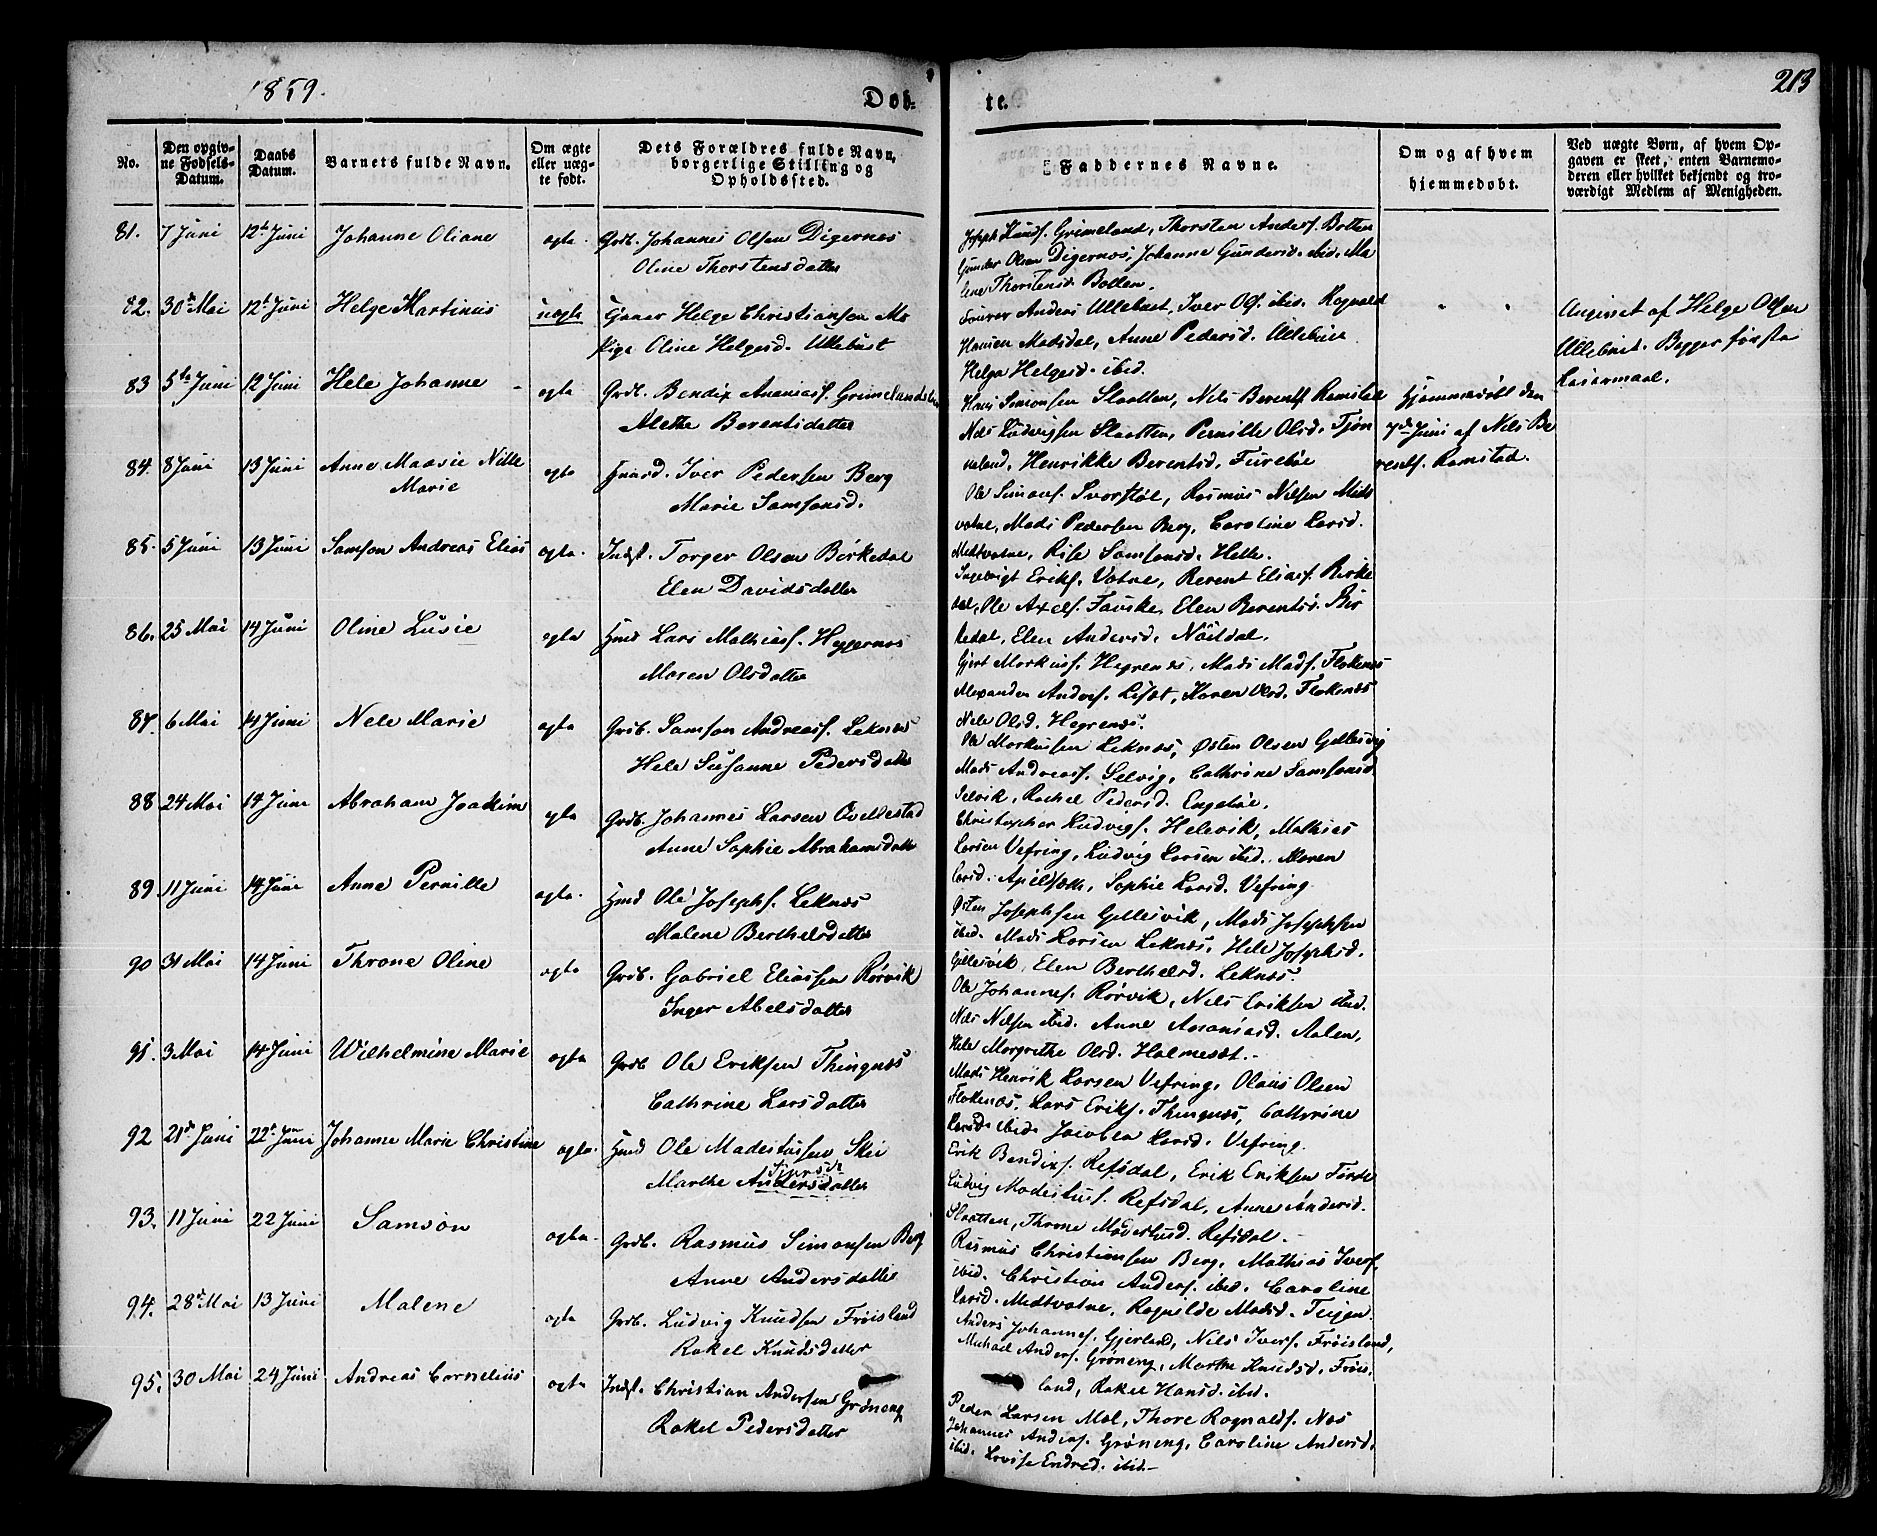 1859.
Døb-
te.
213
No.
Den opgiv-
ne Fødsels-
Datum.
Daabs
Datum.
Barnets fulde Navn.
Om ægte
eller uæg-
te født.
Dets Forældres fulde Navn,
borgerlige Stilling og
Opholdssted.
Faddernes Navne.
Om og af hvem
hjemmedøbt.
Ved uægte Børn, af hvem Op-
gaven er skeet, enten Barnemo-
deren eller hvilket bekjendt og tro-
værdigt Medlem af Menigheden.
81. 7 Juni 12te Juni Johanne Oliane ægte Grdb. Johannes Olsen Digernes
Oline Thorstensdatter
Joseph Knuds. Grimeland, Thorsten Anders. Botten
Gunder Olsen Digernes, Johanne Gundersd. ibid. Ma
line Thorstensd. Botten.
82. 30te Mai 12te Juni Helge Martinus uægte Helge Christiansen
Pige Oline Helgesd. Ullebust
Anders Ullebust, Iver Ols. ibid. Rognald
Hansen Madsdal, Anne Pedersd. Ullebust
Helga Helgesd. ibid.
Angivet af Helge Olsen
Ullebust. Begges første
Leiermaal.
83 5te Juni 12 Juni Hele Johanne ægte Grdb. Bendix Ananiass. Grimelandsbu
Alethe Berentsdatter
Hans Simonsen Slaatten, Nils Berents Ramstad
Nils Ludvigsen Slaatten, Pernille Olsd. Tjøn
neland, Henrikke Berentsd. Furebøe
Hjemmedøbt den
7de Juni af Nils Be
rents. Ramstad.
84. 8 Juni 13 Juni Anne Maasie Nille
Marie
ægte Huusd. Iver Pedersen Berg
Marie Samsonsd.
Ole Simons. Svorstøl, Rasmus Nilsen Midt
vatne, Mads Pedersen Berg, Caroline Larsd.
Medtvatne, Rise Samsonsd. Helle.
85. 5 Juni 13 Juni Samson Andreas Elias ægte Indst. Torger Olsen Birkedal
Elen Davidsdatter
Ingebrigt Eriks. Vatne, Berent Elias. Birke
dal, Ole Axels. Fauske, Elen Berentsd. Bir
kedal, Elen Andersd. Nøitdal.
86. 25 Mai 14 Juni Oline Lusie ægte Hmd Lars Mathias. Heggernes
Maren Olsdatter
Gjert Markus. Hegrenes, Mads Mads. Flokenes
Alexander Andrs. Liset, Karen Olsd. Flokenes
Nele Olsd. Hegrenes.
87. 6 Mai 14 Juni Nele Marie ægte Grdb. Samson Andreass. Leknes
Hele Susanne Pedersdatter
Ole Markussen Leknes, Østen Olsen Gellesvig
Mads Andreass. Selvig, Cathrine Samsonsd
Selvik, Rachel Pedersd. Engebøe.
88 24 Mai 14 Juni Abraham Joakim ægte Grdb. Johannes Larsen Qvellestad
Anne Sophie Abrahamsdatter
Christopher Ludvigs. Helevik, Mathies
Larsen Vefring, Ludvig Larsen ibid. Maren
Larsd. Apelsæth, Sophie Larsd. Vefring.
89 11 Juni 14 Juni Anne Pernille ægte. Hmd Ole Josephs. Leknes
Malene Berthelsdatter
Østen Josephsen Gellesvik, Mads Josephsen
ibid. Mads Larsen Leknes, Hele Josephsd.
Gellesvik, Elen Berthelsd. Leknes.
90 31 Mai 14 Juni Throne Oline ægte Grdb. Gabriel Eliassen Rørvik
Inger Abelsdatter
Ole Johannes. Rørvik, Nils Eriksen ibid.
Nils Nilsen ibid. Anne Ananiasd. Aalen,
Hele Margrethe Olsd. Holmeset.
91. 3 Mai 14 Juni Wilhelmine Marie ægte Grdb Ole Eriksen Thingnes
Cathrine Larsdatter
Mads Henrik Larsen Vefring, Olaus Olsen
Flokenes, Lars Eriks. Thingnes, Cathrine
Larsd. ibid. Jacobea Larsd. Vefring.
92 21de Juni 22de Juni Johanne Marie Christine ægte. Hmd Ole Madestussen Skei
Marthe Andersdatter
Erik Bendixs. Refsdal, Erik Eriksen Førde
Ludvig Modestus. Refsdal, Anne Andersd.
Slaatten, Throne Modestusd. Refsdal.
93. 11 Juni 22 Juni Samson ægte. Grdb. Rasmus Simonsen Berg
Anne Andersdatter
Rasmus Christiansen Berg, Mathias Ivers.
ibid. Christian Anders. ibid. Caroline
Larsd. Medtvatne, Rognilde Madsd. Teigen.
94. 28de Mai 13 Juni Malene ægte Grdb. Ludvig Knudsen Frøisland
Rakel Knudsdatter
Anders Johannes. Gjerland, Nils Ivers. Frøisland,
Michael Anders. Grøneng, Marthe Knudsd. Frøis
land, Rakel Hansd. ibid.
95. 30 Mai 24 Juni Andreas Cornelius ægte Indst. Christian Andersen Grøneng
Rakel Pedersdatter
Peder Larsen Mal, Thore Rognalds. Nes
Johannes Anders. Grøneng, Caroline Andersd.
ibid. Lovise Endred. ibid.